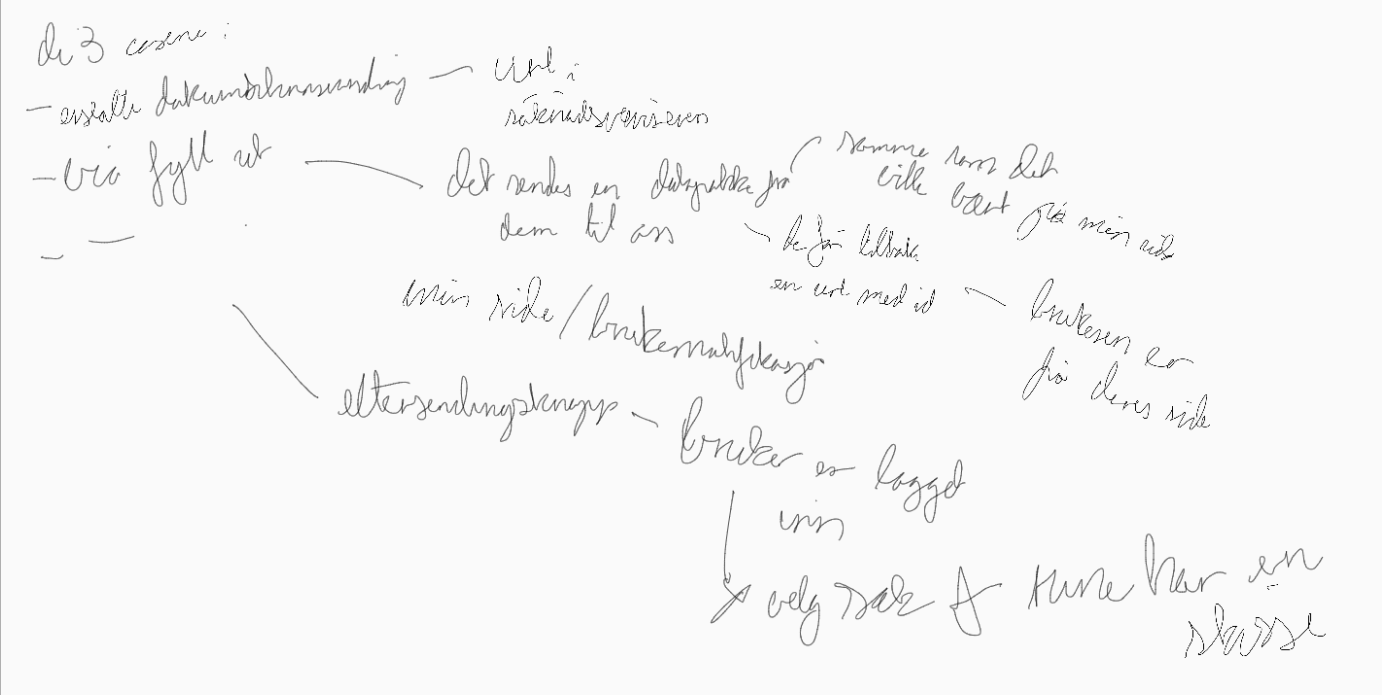 de 3 casene :
— erstatte dokumentinnsending — Url i
søknadsveiviseren
— via fyll ut — det sendes en datapakke fra
dem til oss
samme som det
ville vært på min side
de får tilbake
en url med id — brukeren er
fra deres side
— —
min side / brukernotifikasjon
ettersendingsknapp — bruker er logget
inn
velg sak ← tune har en
skisse